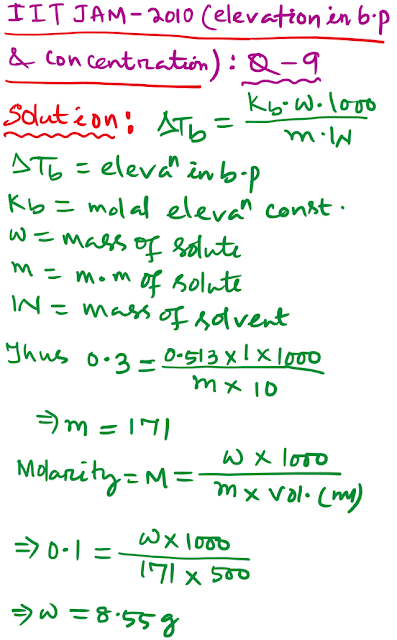 IIT JAM-2010 (elevation in b.p
& concentration) : Q-9
Solution: ΔTb = Kb·w·1000 / m·W
ΔTb = elevaⁿ in b.p
Kb = molal elevaⁿ const.
w = mass of solute
m = m.m of solute
W = mass of solvent
Thus 0.3 = 0.513 x 1 x 1000 / m x 10
⇒ m = 171
Molarity = M = w x 1000 / m x vol. (ml)
⇒ 0.1 = w x 1000 / 171 x 500
⇒ w = 8.55 g